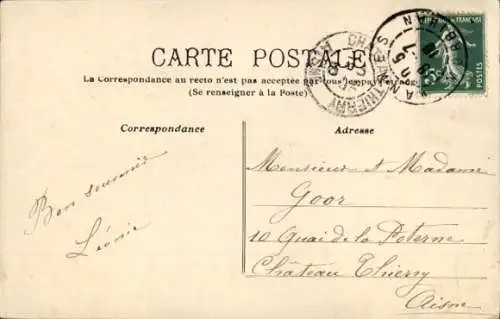 CARTE POSTALE
La Correspondance au recto n'est pas acceptée par tous les pays étrangers
(Se renseigner à la Poste)
Correspondance
Adresse
Bon souvenir
Léonie
Monsieur et Madame
Goor
10 Quai de la Poterne
Château Thierry
Aisne
POSTES